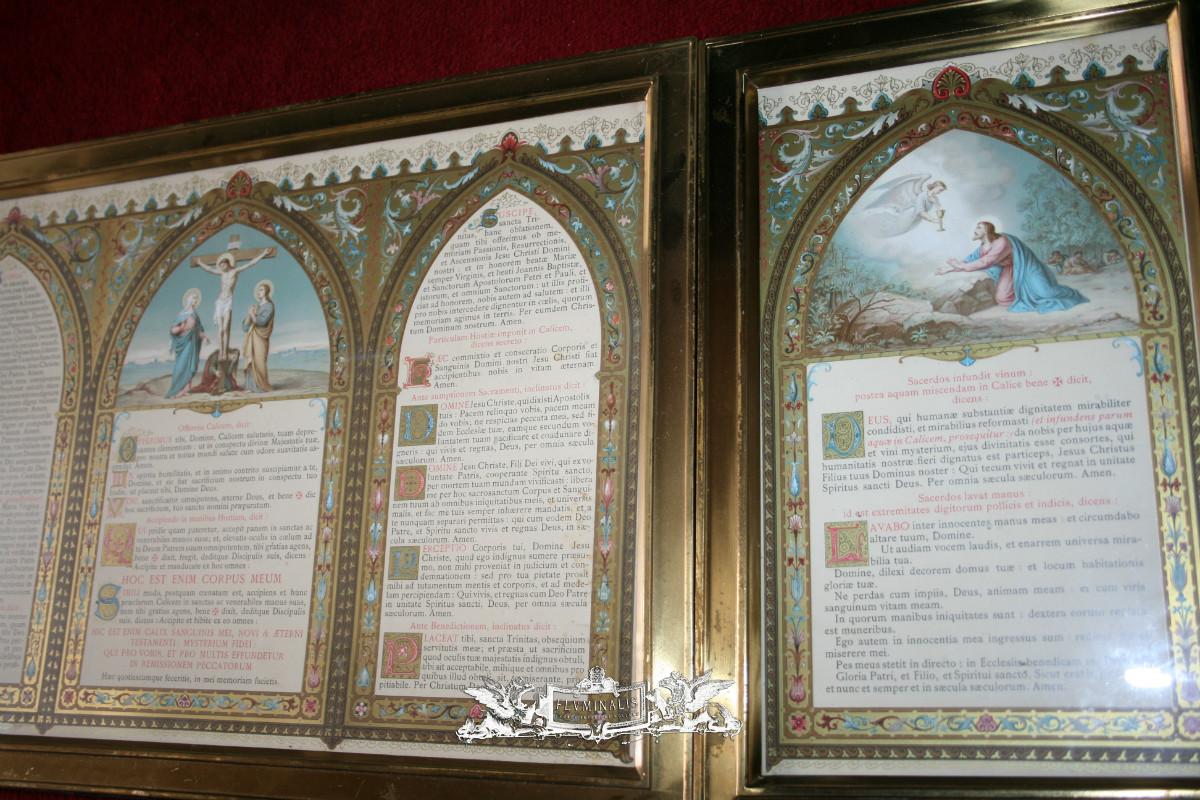 Offerens Calicem, dicit:
OFFERIMUS tibi, Domine, Calicem salutaris, tuam depre-
cantes clementiam: ut in conspectu divinæ Majestatis tuæ,
pro nostra et totius mundi salute cum odore suavitatis as-
cendat. Amen.
IN spiritu humilitatis, et in animo contrito suscipiamur a te,
Domine, et sic fiat sacrificium nostrum in conspectu tuo
hodie, ut placeat tibi, Domine Deus.
VENI, sanctificator omnipotens, æterne Deus, et bene ✠ dic
hoc sacrificium, tuo sancto nomini præparatum.
Accipiendo in manibus Hostiam, dicit:
QUI pridie quam pateretur, accepit panem in sanctas ac
venerabiles manus suas; et, elevatis oculis in cœlum ad
te Deum Patrem suum omnipotentem, tibi gratias agens,
bene ✠ dixit, fregit, deditque Discipulis suis, dicens:
Accipite et manducate ex hoc omnes:
HOC EST ENIM CORPUS MEUM
SIMILI modo, postquam cœnatum est, accipiens et hunc
præclarum Calicem in sanctas ac venerabiles manus suas,
item tibi gratias agens, bene ✠ dixit, deditque Discipulis
suis, dicens: Accipite et bibite ex eo omnes:
HIC EST ENIM CALIX SANGUINIS MEI, NOVI & ÆTERNI
TESTAMENTI: MYSTERIUM FIDEI:
QUI PRO VOBIS, ET PRO MULTIS EFFUNDETUR
IN REMISSIONEM PECCATORUM
Hæc quotiescumque feceritis, in mei memoriam facietis.
SUSCIPE,
sancta Tri-
nitas, hanc oblationem,
quam tibi offerimus ob me-
moriam Passionis, Resurrectionis,
et Ascensionis Jesu Christi Domini
nostri: et in honorem beatæ Mariæ
semper Virginis, et beati Joannis Baptistæ,
et Sanctorum Apostolorum Petri et Pauli, et
istorum, et omnium Sanctorum: ut illis profi-
ciat ad honorem, nobis autem ad salutem: et illi
pro nobis intercedere dignentur in cœlis, quorum
memoriam agimus in terris. Per eumdem Chris-
tum Dominum nostrum. Amen.
Particulam Hostiæ imponit in Calicem,
dicens secreto:
HÆC commixtio et consecratio Corporis et
Sanguinis Domini nostri Jesu Christi fiat
accipientibus nobis in vitam æternam.
Amen.
Ante sumptionem Sacramenti, inclinatus dicit:
DOMINE Jesu Christe, qui dixisti Apostolis
tuis: Pacem relinquo vobis, pacem meam
do vobis, ne respicias peccata mea, sed fi-
dem Ecclesiæ tuæ, eamque secundum vo-
luntatem tuam pacificare et coadunare di-
gneris: qui vivis et regnas, Deus, per omnia sæcula
sæculorum. Amen.
DOMINE Jesu Christe, Fili Dei vivi, qui ex vo-
luntate Patris, cooperante Spiritu sancto,
per mortem tuam mundum vivificasti: libera
me per hoc sacrosanctum Corpus et Sangui-
nem tuum ab omnibus iniquitatibus meis, et universis
malis, et fac me tuis semper inhærere mandatis, et a
te nunquam separari permittas: qui cum eodem Deo
Patre, et Spiritu sancto vivis et regnas Deus, in sæ-
cula sæculorum. Amen.
PERCEPTIO Corporis tui, Domine Jesu
Christe, quod ego indignus sumere præsu-
mo, non mihi proveniat in judicium et con-
demnationem: sed pro tua pietate prosit
mihi ad tutamentum mentis et corporis, et ad mede-
lam percipiendam: Qui vivis, et regnas cum Deo Patre
in unitate Spiritus sancti, Deus, per omnia sæcula
sæculorum. Amen.
Ante Benedictionem, inclinatus dicit:
PLACEAT tibi, sancta Trinitas, obsequium
servitutis meæ; et præsta ut sacrificium
quod oculis tuæ majestatis indignus obtuli,
tibi sit acceptabile, mihique et omnibus pro
quibus illud obtuli, sit, te miserante, pro-
pitiabile. Per Christum
Sacerdos infundit vinum:
postea aquam miscendam in Calice bene ✠ dicit,
dicens:
DEUS, qui humanæ substantiæ dignitatem mirabiliter
condidisti, et mirabilius reformasti (et infundens parum
aquæ in Calicem, prosequitur:) da nobis per hujus aquæ
et vini mysterium, ejus divinitatis esse consortes, qui
humanitatis nostræ fieri dignatus est particeps, Jesus Christus
Filius tuus Dominus noster: Qui tecum vivit et regnat in unitate
Spiritus sancti Deus. Per omnia sæcula sæculorum. Amen.
Sacerdos lavat manus:
id est extremitates digitorum pollicis et indicis, dicens:
LAVABO inter innocentes manus meas: et circumdabo
altare tuum, Domine.
Ut audiam vocem laudis, et enarrem universa mira-
bilia tua.
Domine, dilexi decorem domus tuæ: et locum habitationis
gloriæ tuæ.
Ne perdas cum impiis, Deus, animam meam: et cum viris
sanguinum vitam meam.
In quorum manibus iniquitates sunt: dextera eorum repleta
est muneribus.
Ego autem in innocentia mea ingressus sum:
miserere mei.
Pes meus stetit in directo: in Ecclesiis benedicam
Gloria Patri, et Filio, et Spiritui sancto. Sicut erat
et nunc et semper et in sæcula sæculorum. Amen.
FLVMINALIS